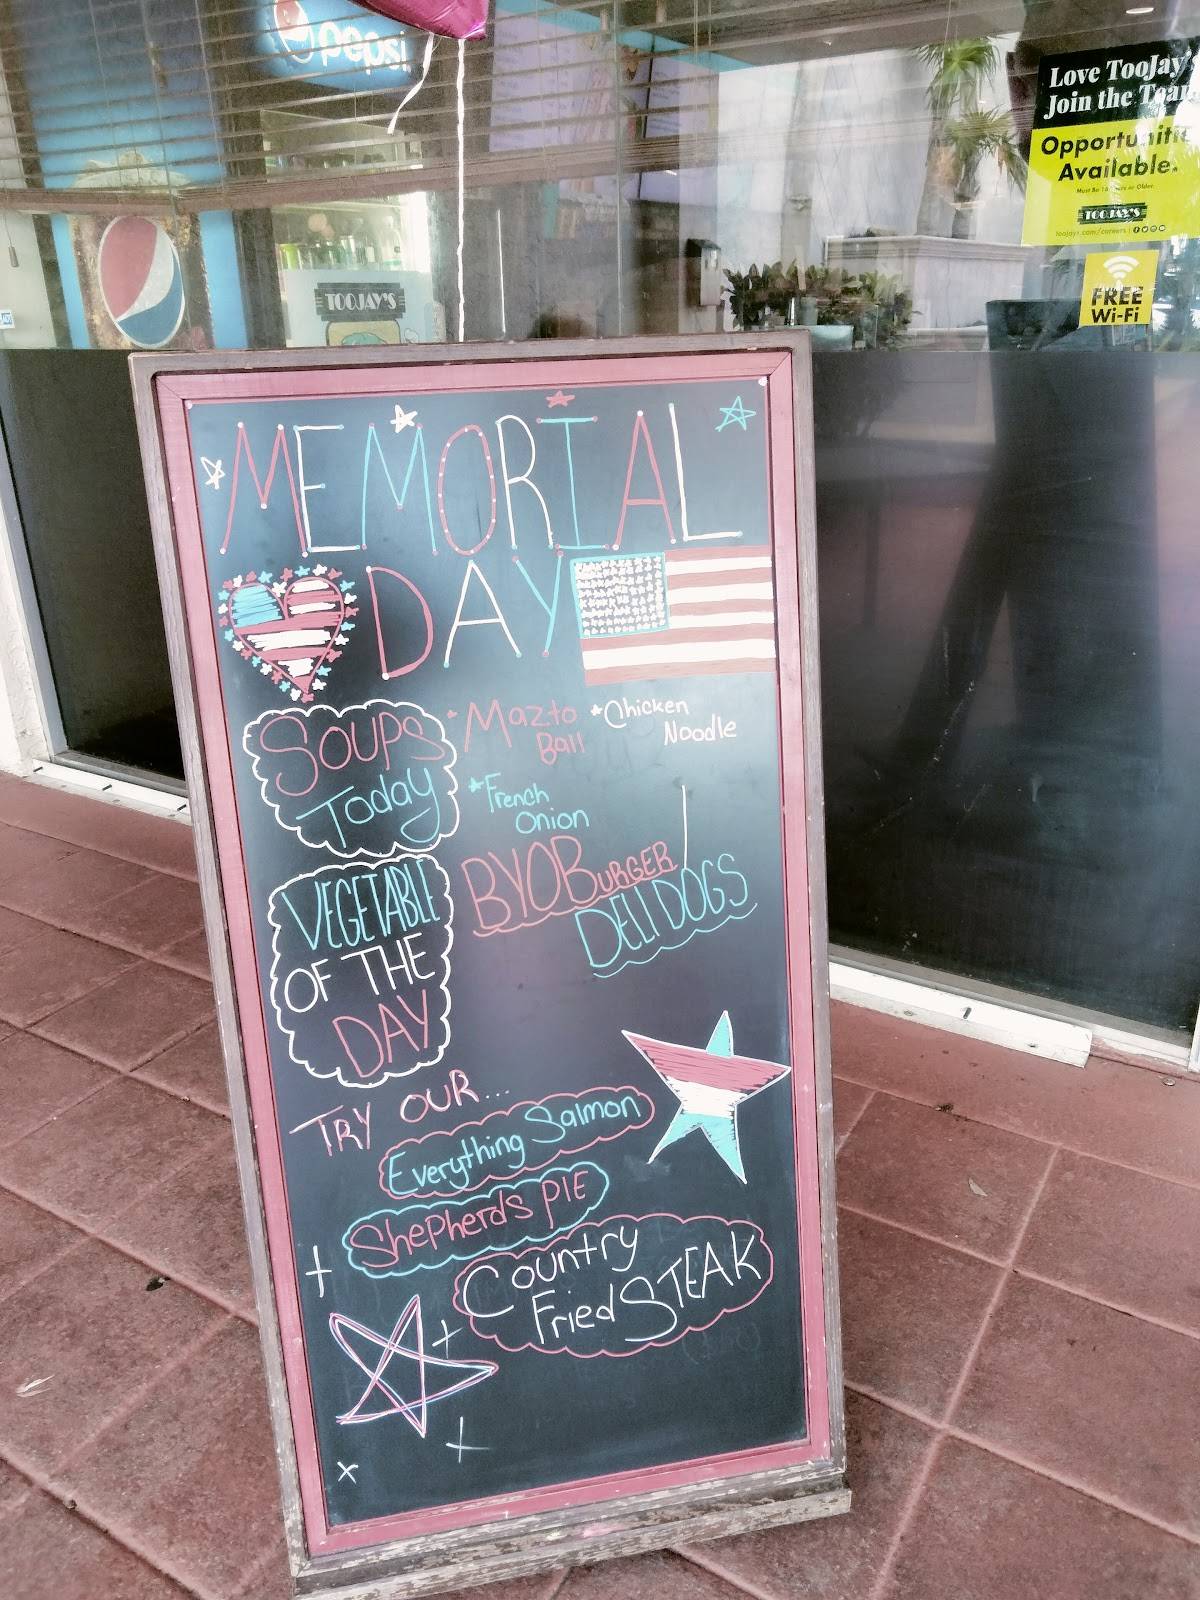 pepsi
Love TooJay's
Join the Team
Opportunities
Available.
Must Be 16 Years or Older.
TOOJAY'S
toojays.com/careers
FREE
Wi-Fi
TOOJAY'S
MEMORIAL
DAY
SOUPS
Today
*Mazto
Ball
*Chicken
Noodle
*French
Onion
VEGETABLE
OF THE
DAY
BYOBURGER/
DELI DOGS
TRY OUR...
Everything Salmon
Shepherds PIE
Country
Fried STEAK